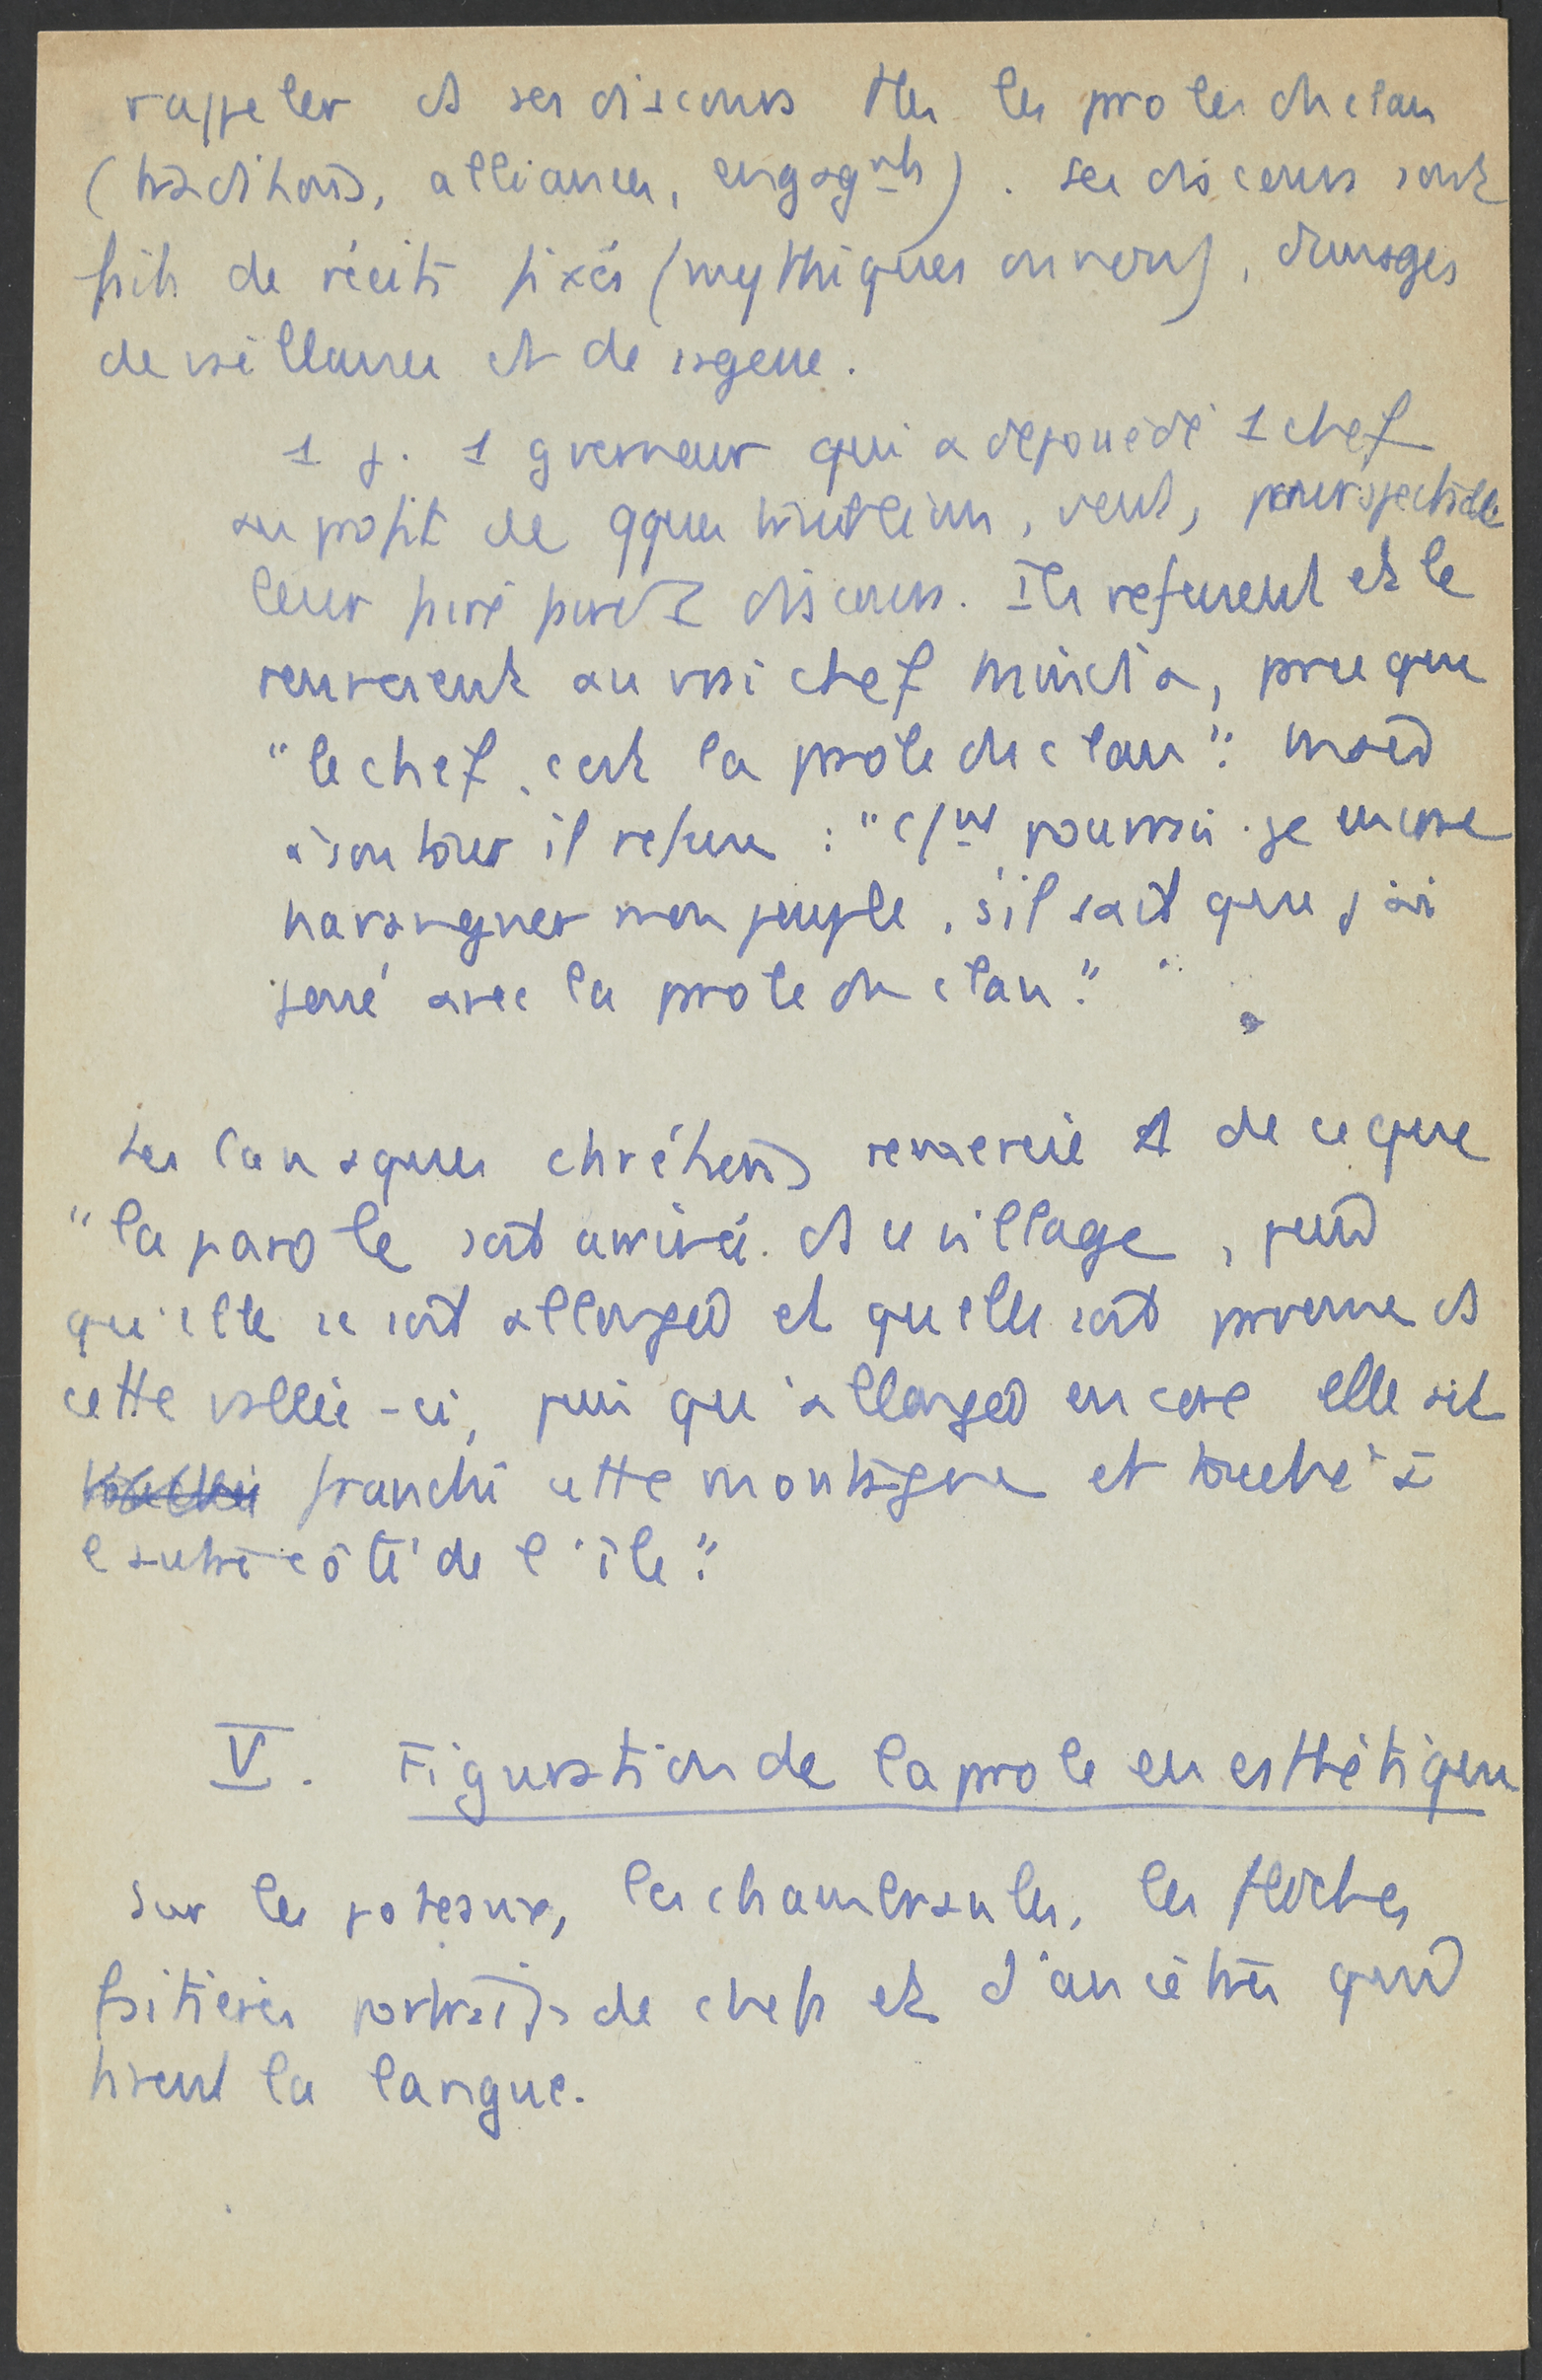 rappeler ds ses discours ttes les proles du clan
(traditions, alliances, engagmts). Ses discours sont
faits de récits fixés (mythiques ou non), d'images
de vaillance et de sagesse.
1 j. 1 gverneur qui a dépossédé 1 chef
au profit de qques turbulents, veut, pour spectacle
leur faire faire 1 discours. Ils refusent et le
renvoient au vrai chef Mindia, prce que
"le chef, c'est la prole du clan". Mais
à son tour il refuse : "c/mt pourrai-je encore
haranguer mon peuple, s'il sait que j'ai
joué avec la prole du clan."
Les Canaques chrétiens remercie de ce que
"la parole soit arrivée ds ce village, puis
qu'elle se soit allongée et qu'elle soit prvenue ds
cette vallée-ci, puis qu'allongée encore elle ait
franchi cette montagne et touché à
l'autre côté de l'île".
V. Figuration de la prole en esthétique
Sur les poteaux, les chambranles, les flèches
faitières portraits de chefs et d'ancêtres qui
tirent la langue.